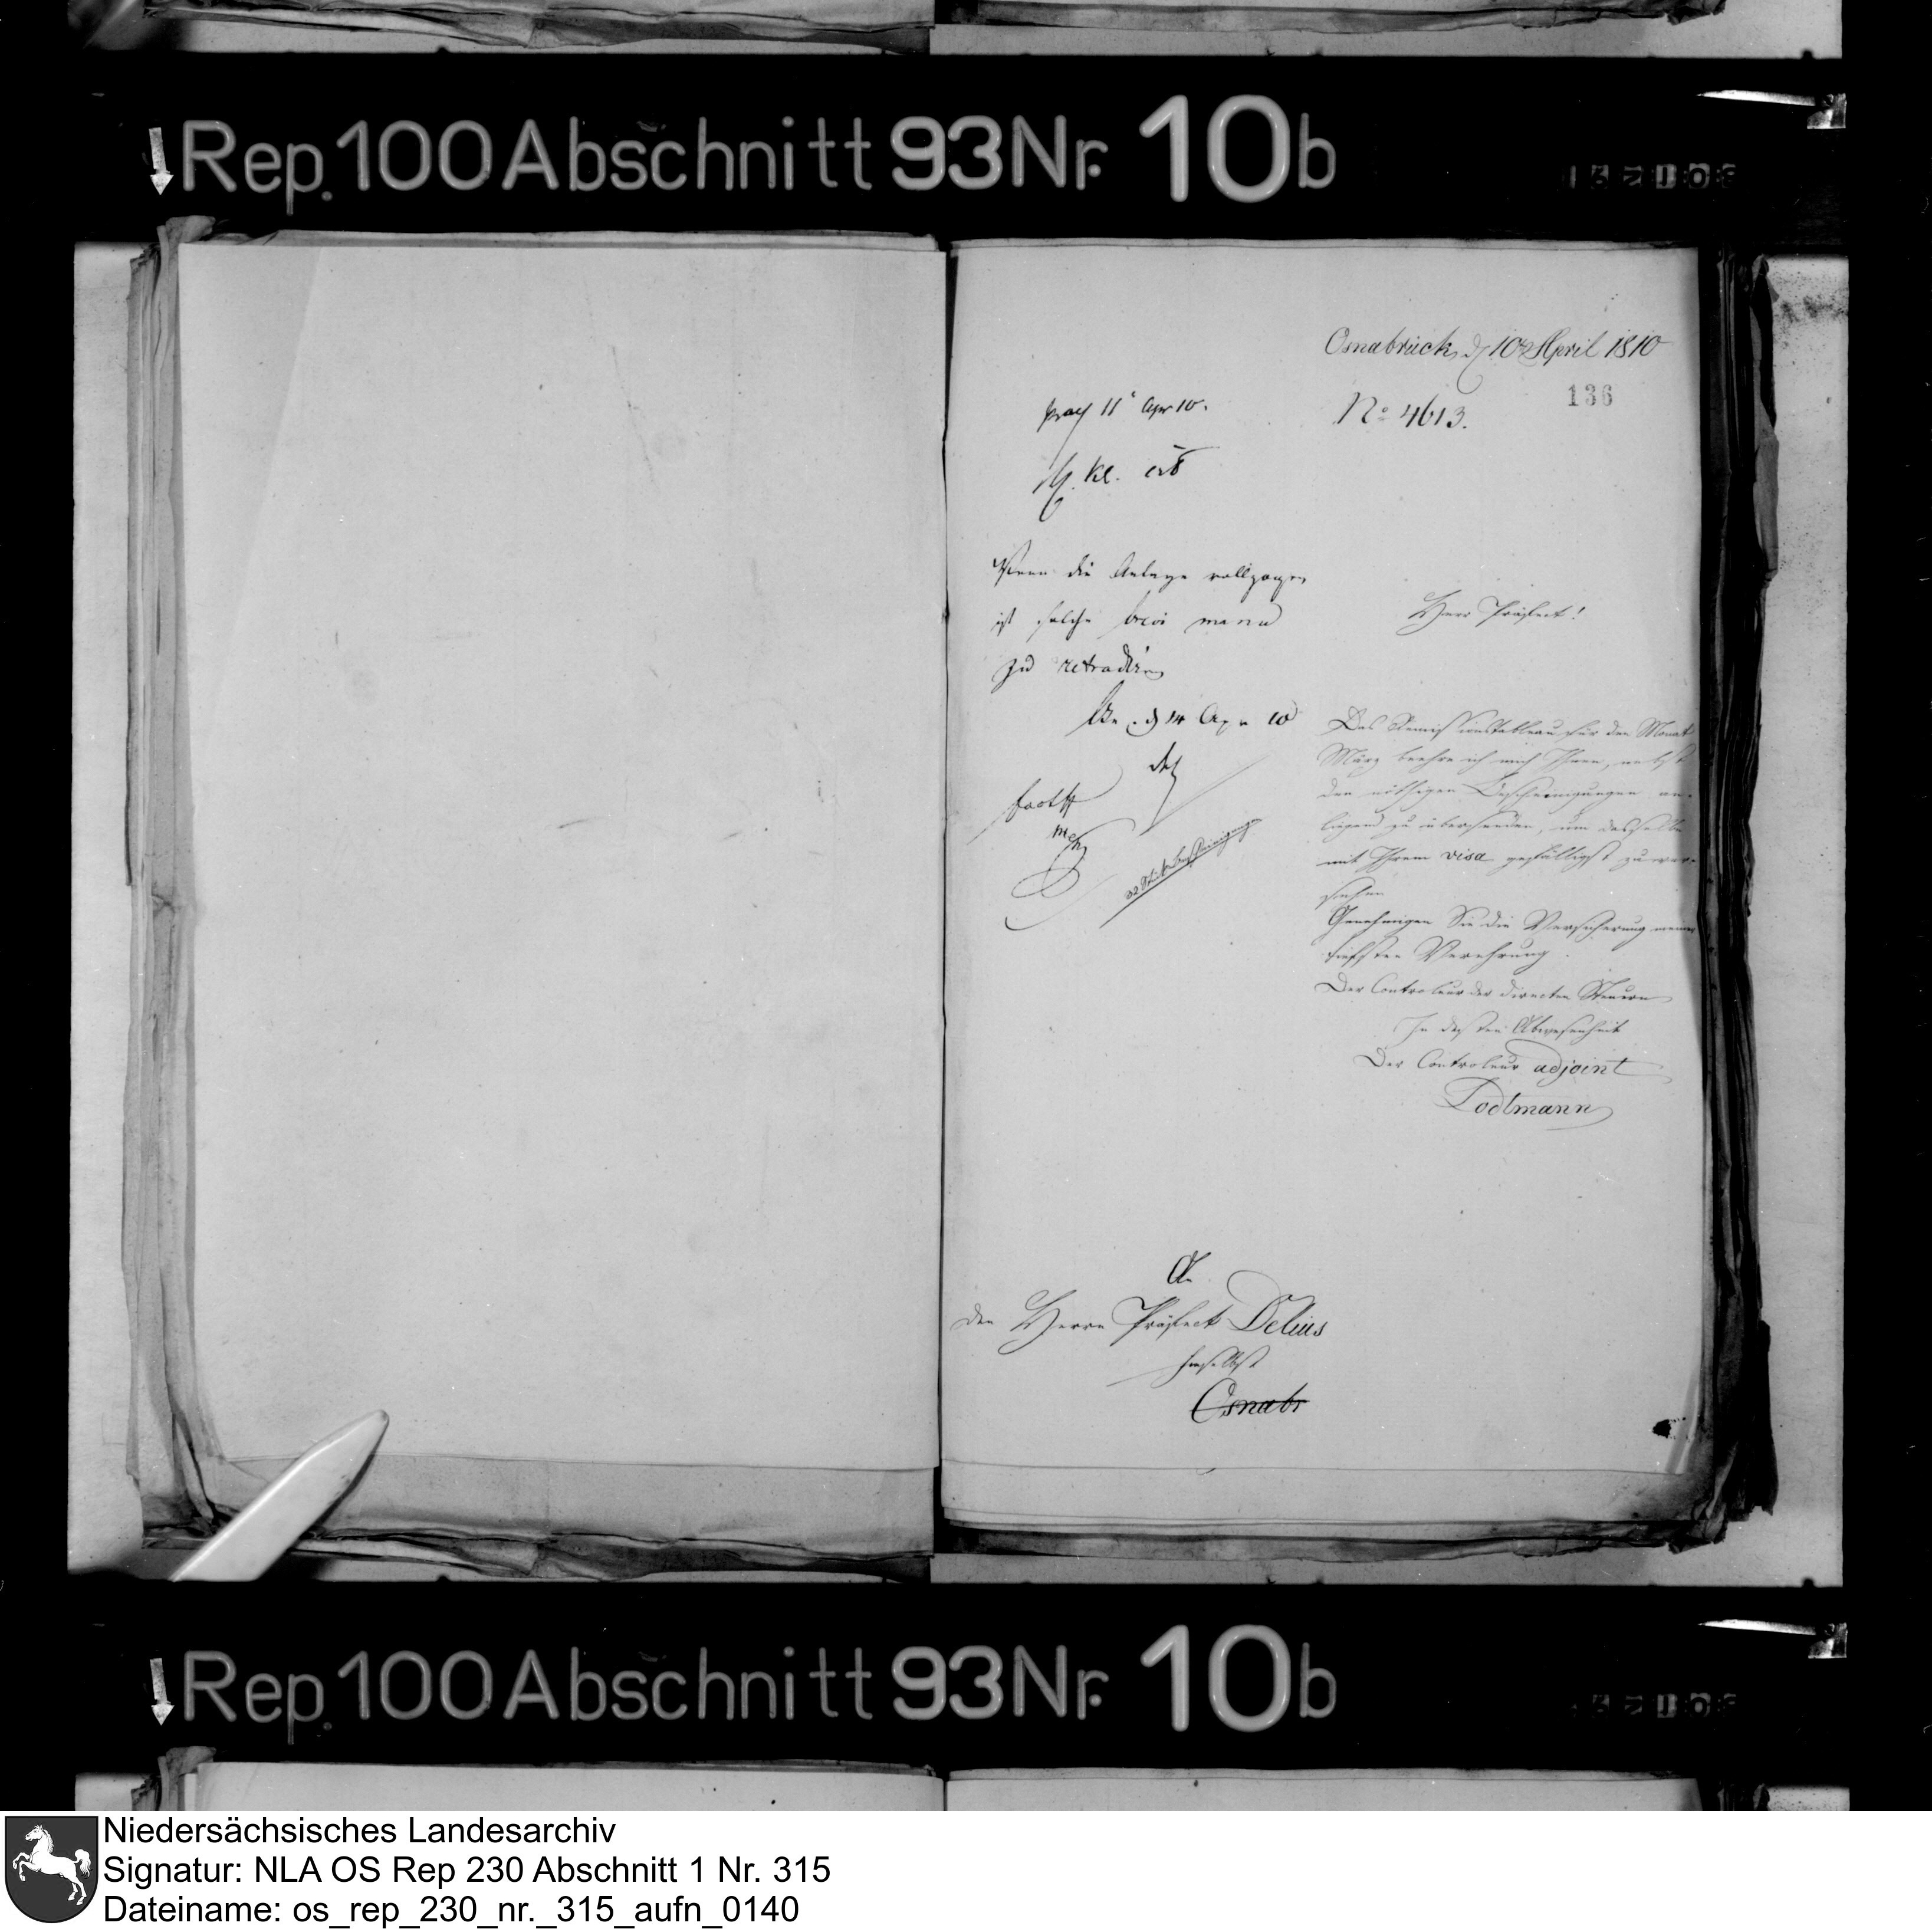 Rep. 100 Abschnitt 93 Nr. 10b
Osnabrück, d 10 April 1810
136
No 4613.
11 Apr 10.
Wenn die Anlage vollzogen
ist solche brevi manu
zu retradiren
d 14 Apr 10
Herr Präfect!
Das Remissionstableau für den Monat
März beehre ich mich Ihnen, nebst
den nöthigen Bescheinigungen an-
liegend zu übersenden, um dasselbe
mit Ihrem visa gefälligst zu ver-
sehen
Genehmigen Sie die Versicherung meiner
tiefsten Verehrung.
Der Controleur der directen Steuern
In dessen Abwesenheit
Der Controleur adjoint
Dodtmann
An
den Herrn Präfect Delius
hieselbst
Osnabr
Rep. 100 Abschnitt 93 Nr. 10b
Niedersächsisches Landesarchiv
Signatur: NLA OS Rep 230 Abschnitt 1 Nr. 315
Dateiname: os_rep_230_nr._315_aufn_0140